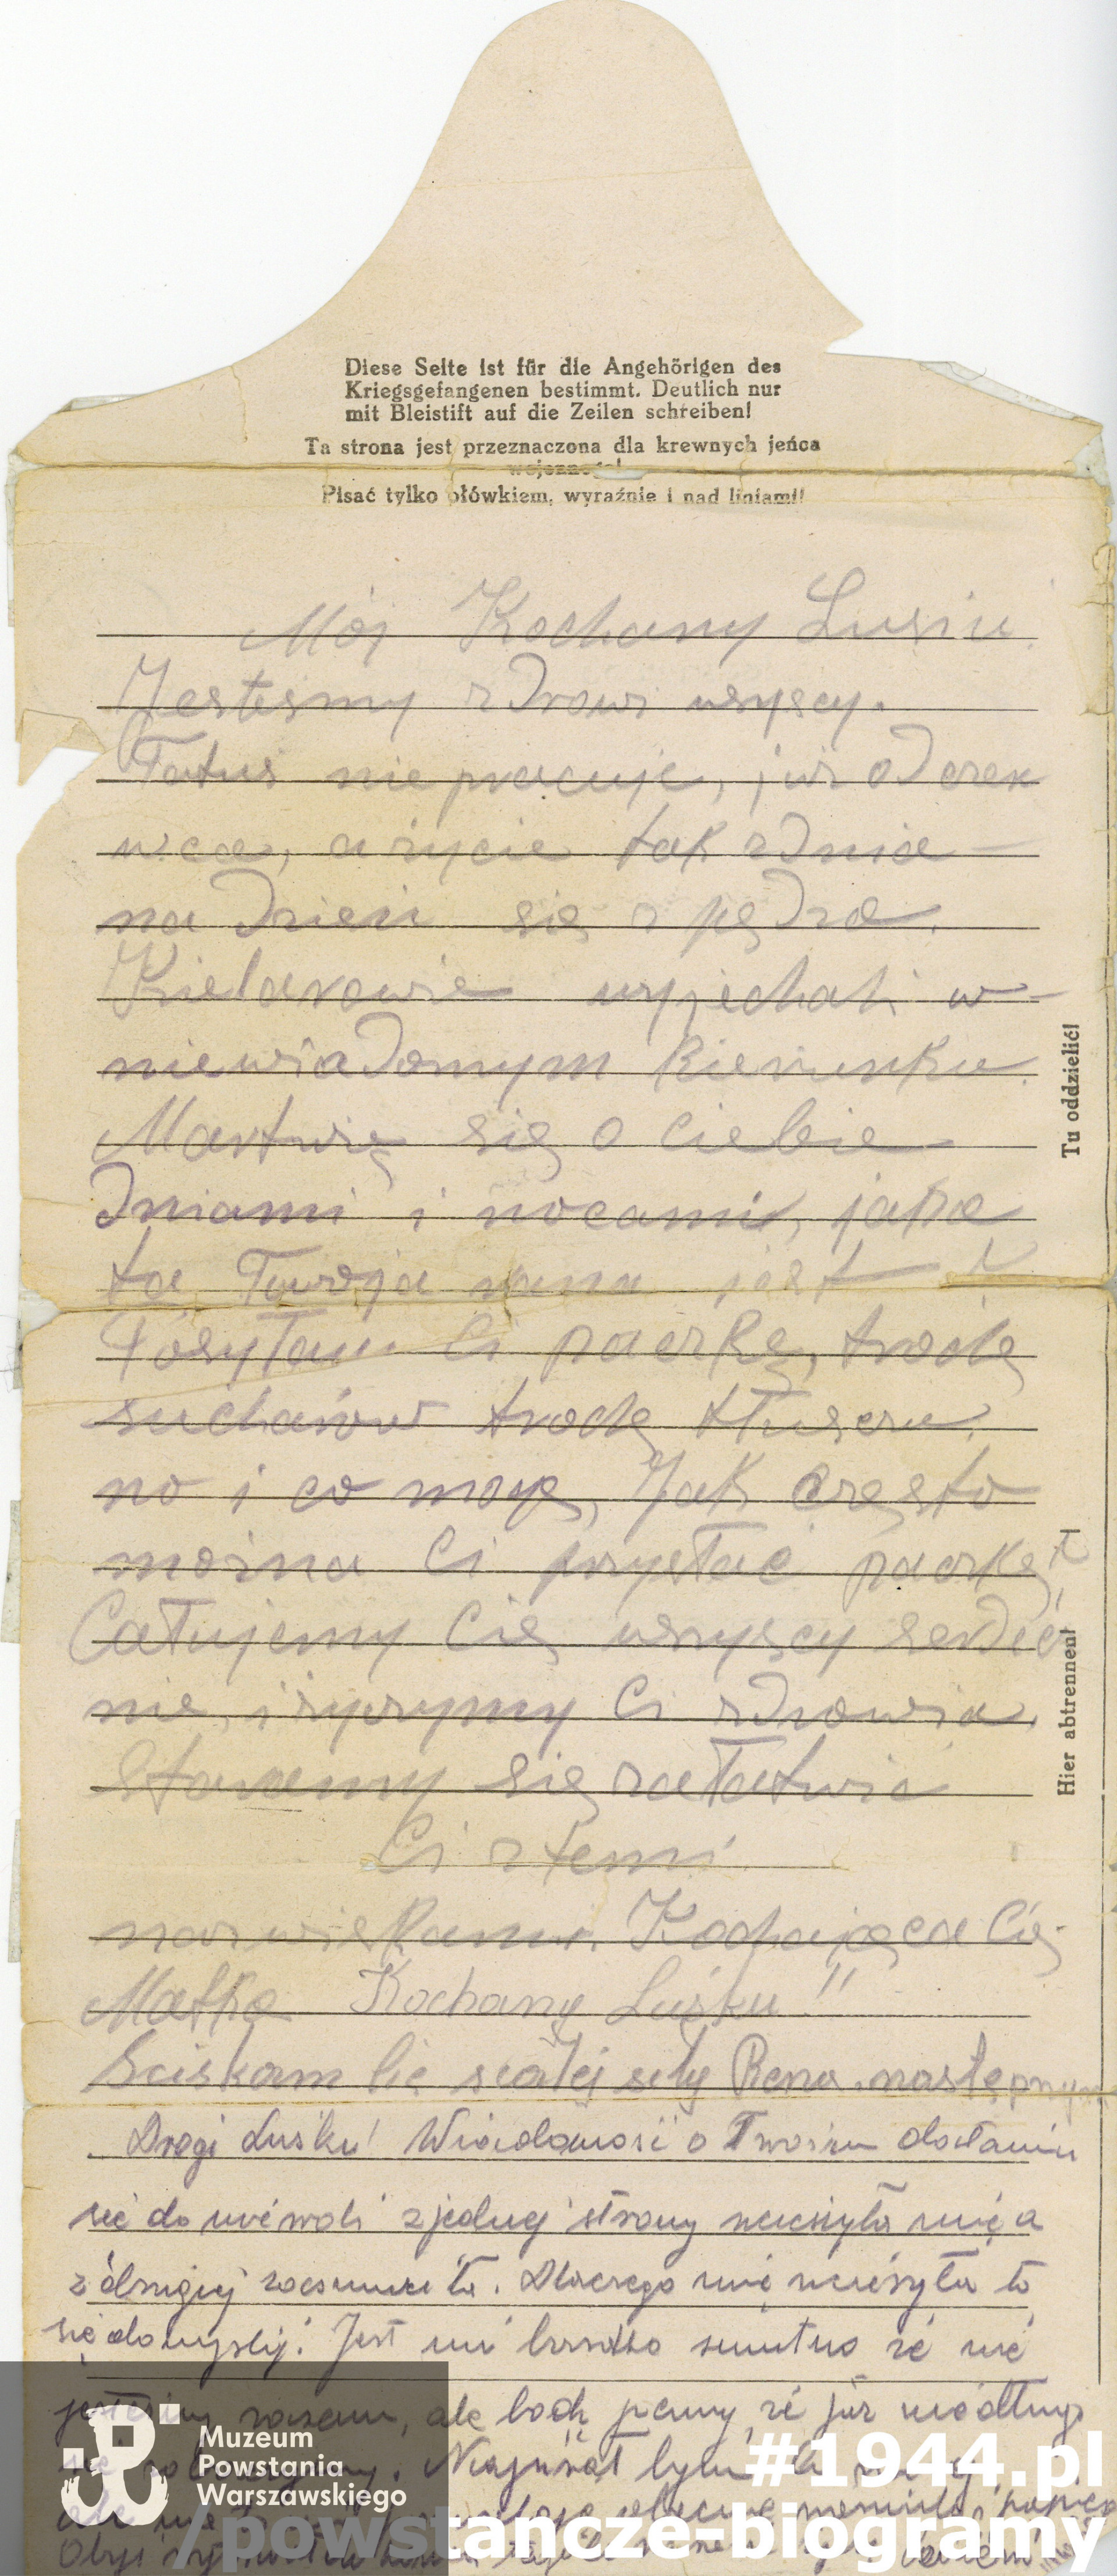 Diese Seite ist für die Angehörigen des
Kriegsgefangenen bestimmt. Deutlich nur
mit Bleistift auf die Zeilen schreiben!
Ta strona jest przeznaczona dla krewnych jeńca
wojennego!
Pisać tylko ołówkiem, wyraźnie i nad liniami!
Mój Kochany Lusiu
Jesteśmy zdrowi wszyscy.
Tatuś nie pracuje, już od czer
wca, a życie tak z dnia
na dzień się spędza.
Kielarowie wyjechali w
niewiadomym kierunku.
Martwię się o Ciebie
dniami i nocami, jaka
ta Twoja rana jest ?
Posyłam Ci paczkę, trochę
sucharów trochę tłuszczu
no i co mogę, Jak często
można Ci przysłać paczkę?
Całujemy Cię wszyscy serdecz
nie, i życzymy Ci zdrowia.
Staramy się załatwić
Ci z temi
nazwiskami. Kochająca Cię
Matka Kochany Luśku!!
Sciskam Cię z całej siły Rena. następnym
Drogi Luśku! Wiadomość o Twoim dostaniu
się do niewoli z jednej strony ucieszyła mię a
z drugiej zasmuciła. Dlaczego mię ucieszyła to
się domyślij. Jest mi bardzo smutno że nie
jesteśmy razem, ale bądź pewny że już niedługo
się zobaczymy. Napisał bym Ci
ale nie
Obyś
Tu oddzielić!
Hier abtrennen!
Muzeum
Powstania
Warszawskiego
#1944.pl
/powstancze-biogramy